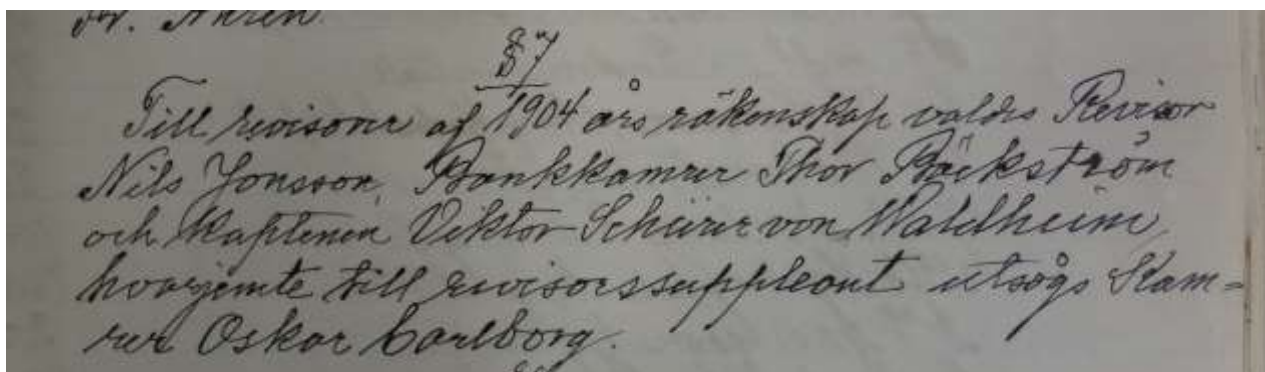 § 7
Till revisorer af 1904 års räkenskap valdes Revisor
Nils Jonsson, Bankkamrer Thor Bäckström
och Kaptenen Viktor Schürer von Waldheim,
hvarjemte till revisorssuppleant utsågs Kam=
rer Oskar Carlborg.